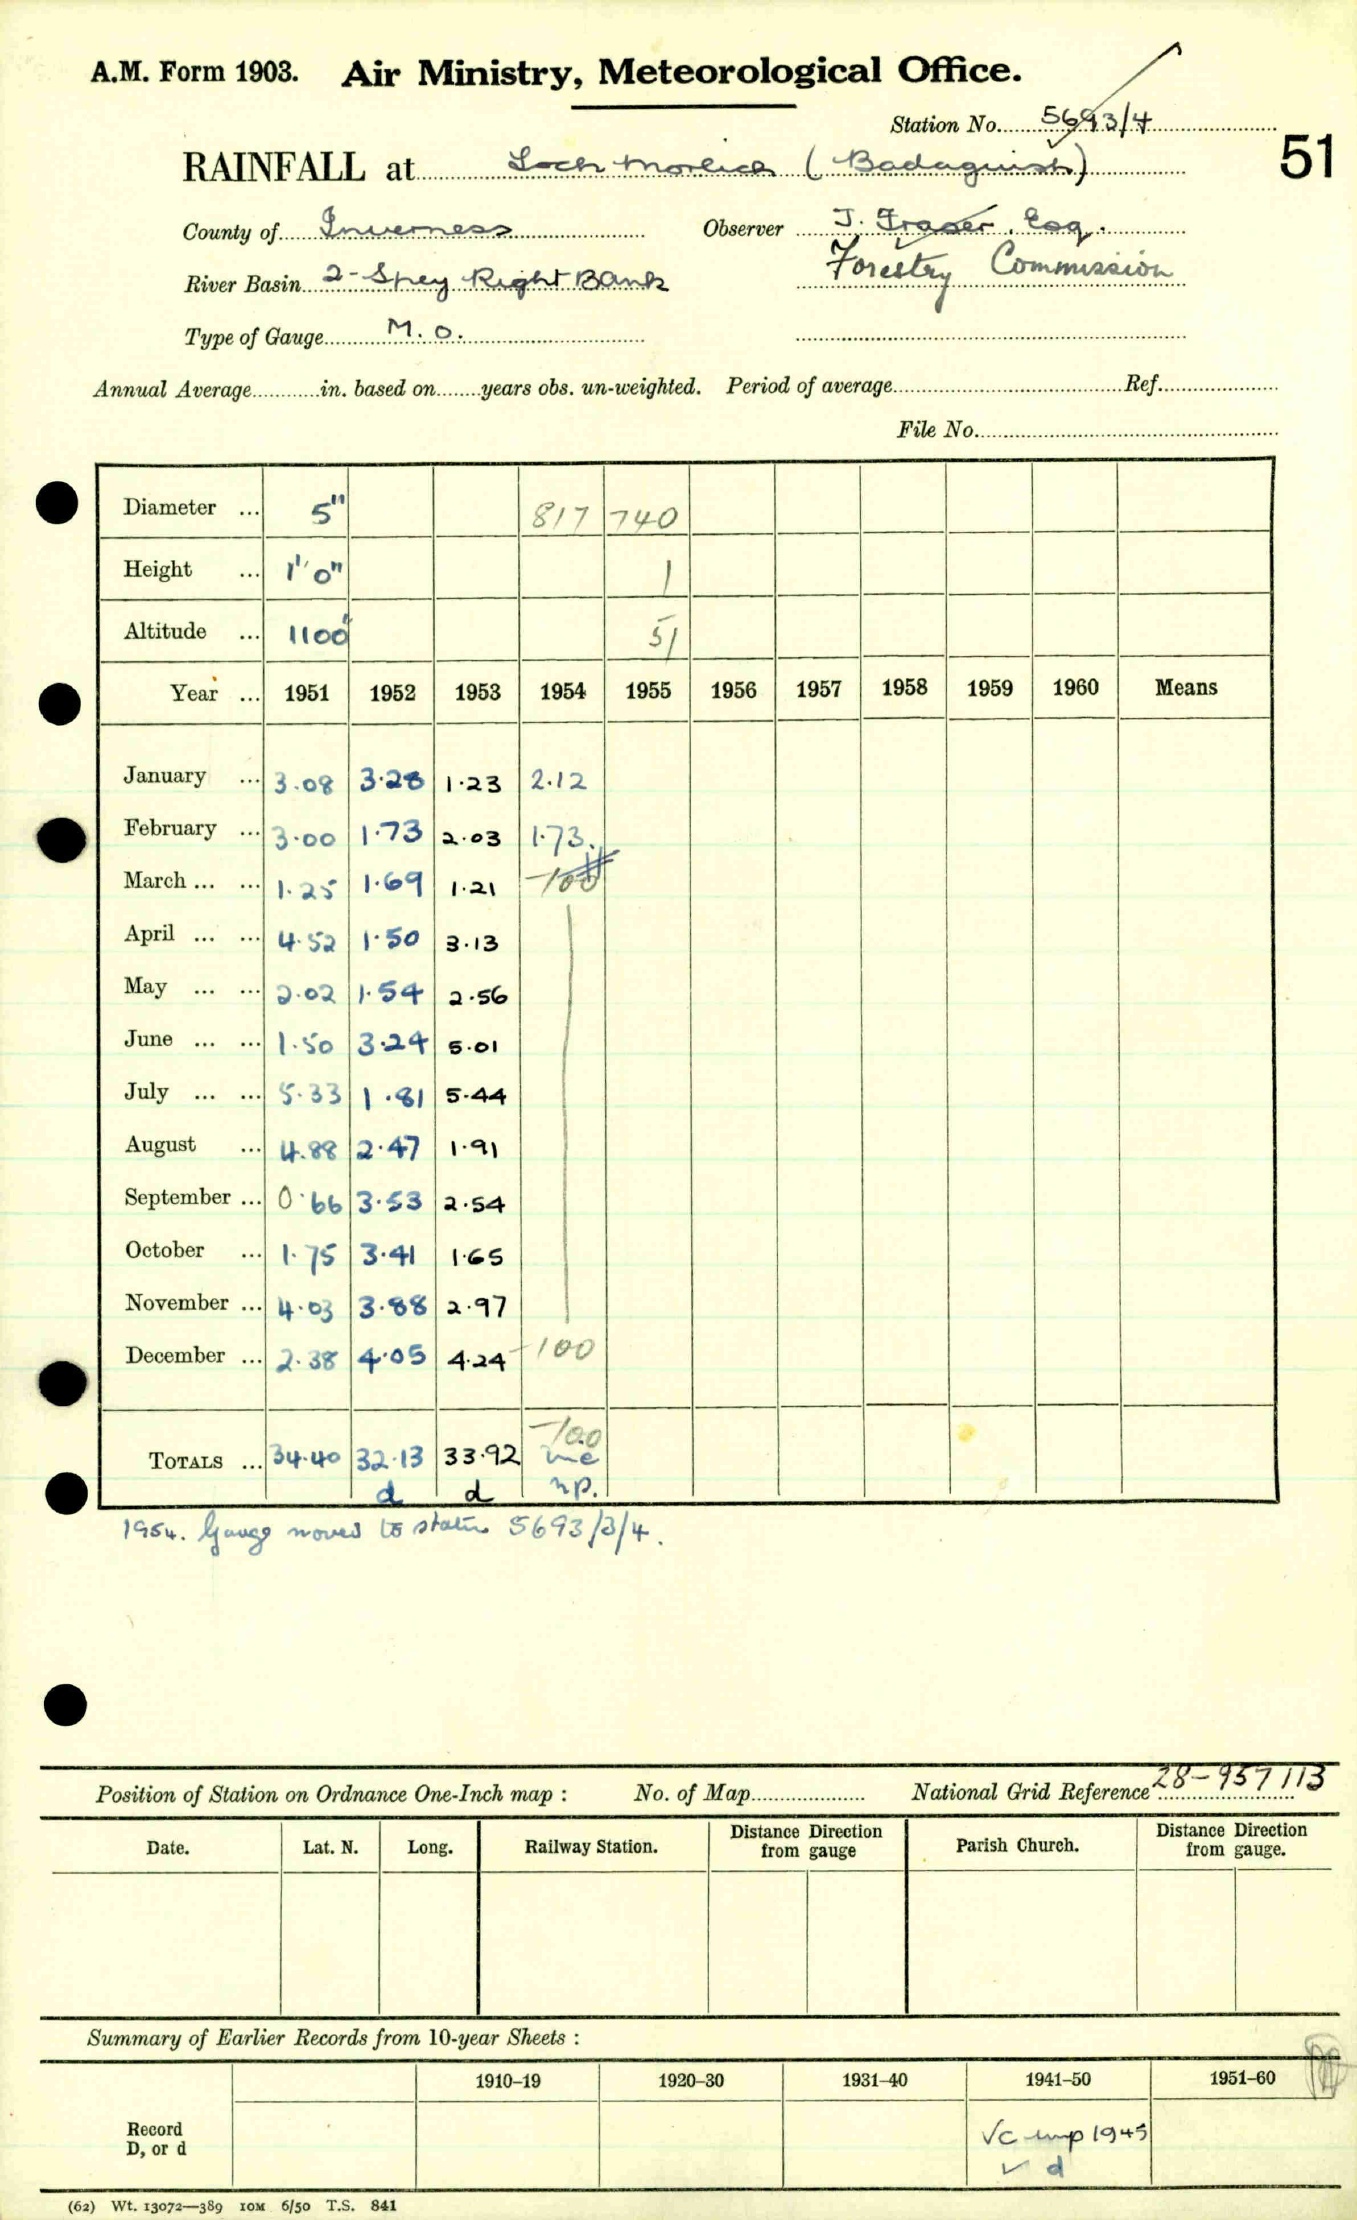 A.M. Form 1903. Air Ministry, Meteorological Office.
Station No. 5693/4
51
RAINFALL at Loch Morlich (Badaguish)
County of Inverness Observer J. Fraser. Esq.
Forestry Commission
River Basin 2-Spey Right Bank
Type of Gauge M.O.
Annual Average in. based on years obs. un-weighted. Period of average Ref.
File No.
Diameter ... 5" 817 740
Height ... 1' 0" 1
Altitude ... 1100' 51
Year ... 1951 1952 1953 1954 1955 1956 1957 1958 1959 1960 Means
January ... 3.08 3.28 1.23 2.12
February ... 3.00 1.73 2.03 1.73.
March ... ... 1.25 1.69 1.21 -100
April ... ... 4.52 1.50 3.13
May ... ... 2.02 1.54 2.56
June ... ... 1.50 3.24 5.01
July ... ... 5.33 1.81 5.44
August ... 4.88 2.47 1.91
September ... 0.66 3.53 2.54
October ... 1.75 3.41 1.65
November ... 4.03 3.88 2.97
December ... 2.38 4.05 4.24 -100
-100
TOTALS ... 34.40 32.13 33.92 inc
d d np.
1954. Gauge moved to station 5693/3/4.
Position of Station on Ordnance One-Inch map : No. of Map National Grid Reference 28-957113
Date. Lat. N. Long. Railway Station. Distance from gauge Direction Parish Church. Distance from gauge. Direction
Summary of Earlier Records from 10-year Sheets :
1910–19 1920–30 1931–40 1941–50 1951–60
Record D, or d √c imp 1945
✓ d
(62) Wt. 13072—389 10M 6/50 T.S. 841